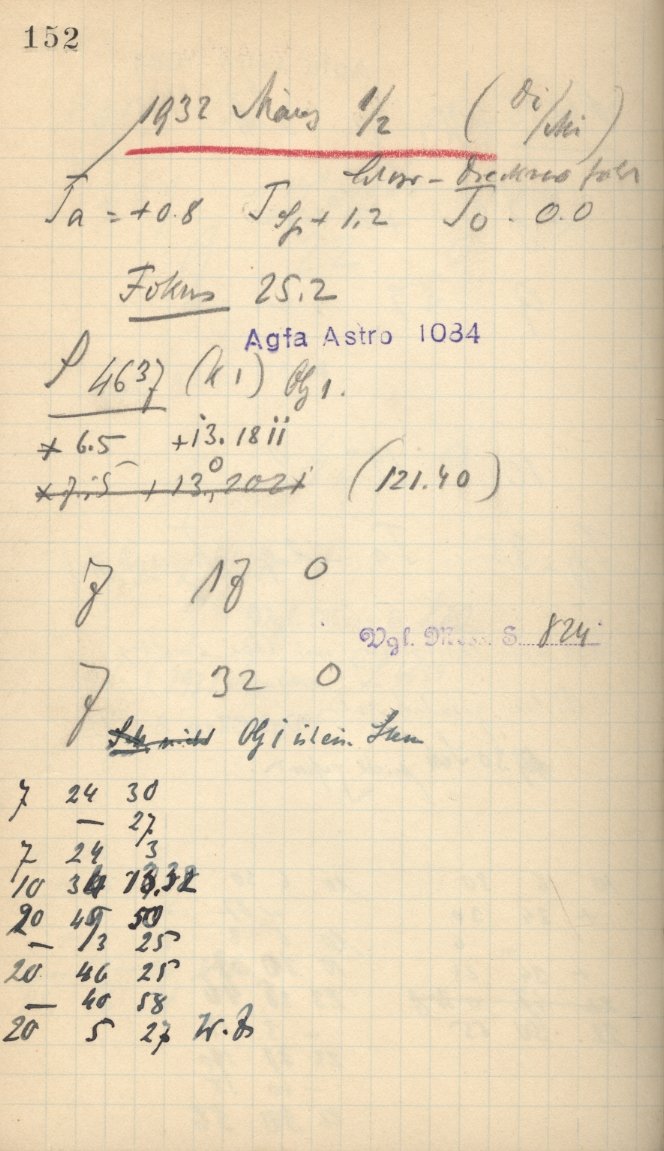 152
1932 März 1/2 (Di/Mi)
Ta = +0.8 TSp + 1.2 To - 0.0
Fokus 25.2
Agfa Astro 1084
P 4637 (K 1) Obj 1.
* 6.5 +13.18 ii
* 7.5 +13°, 202 i (121.40)
7 17 0
Vgl. S. 824
7 32 0
nicht Obj i ist ein Stern
7 24 30
— 27
7 24 3
10 34 13.32
20 49 50
— 3 25
20 46 25
— 40 58
20 5 27 W.Z.